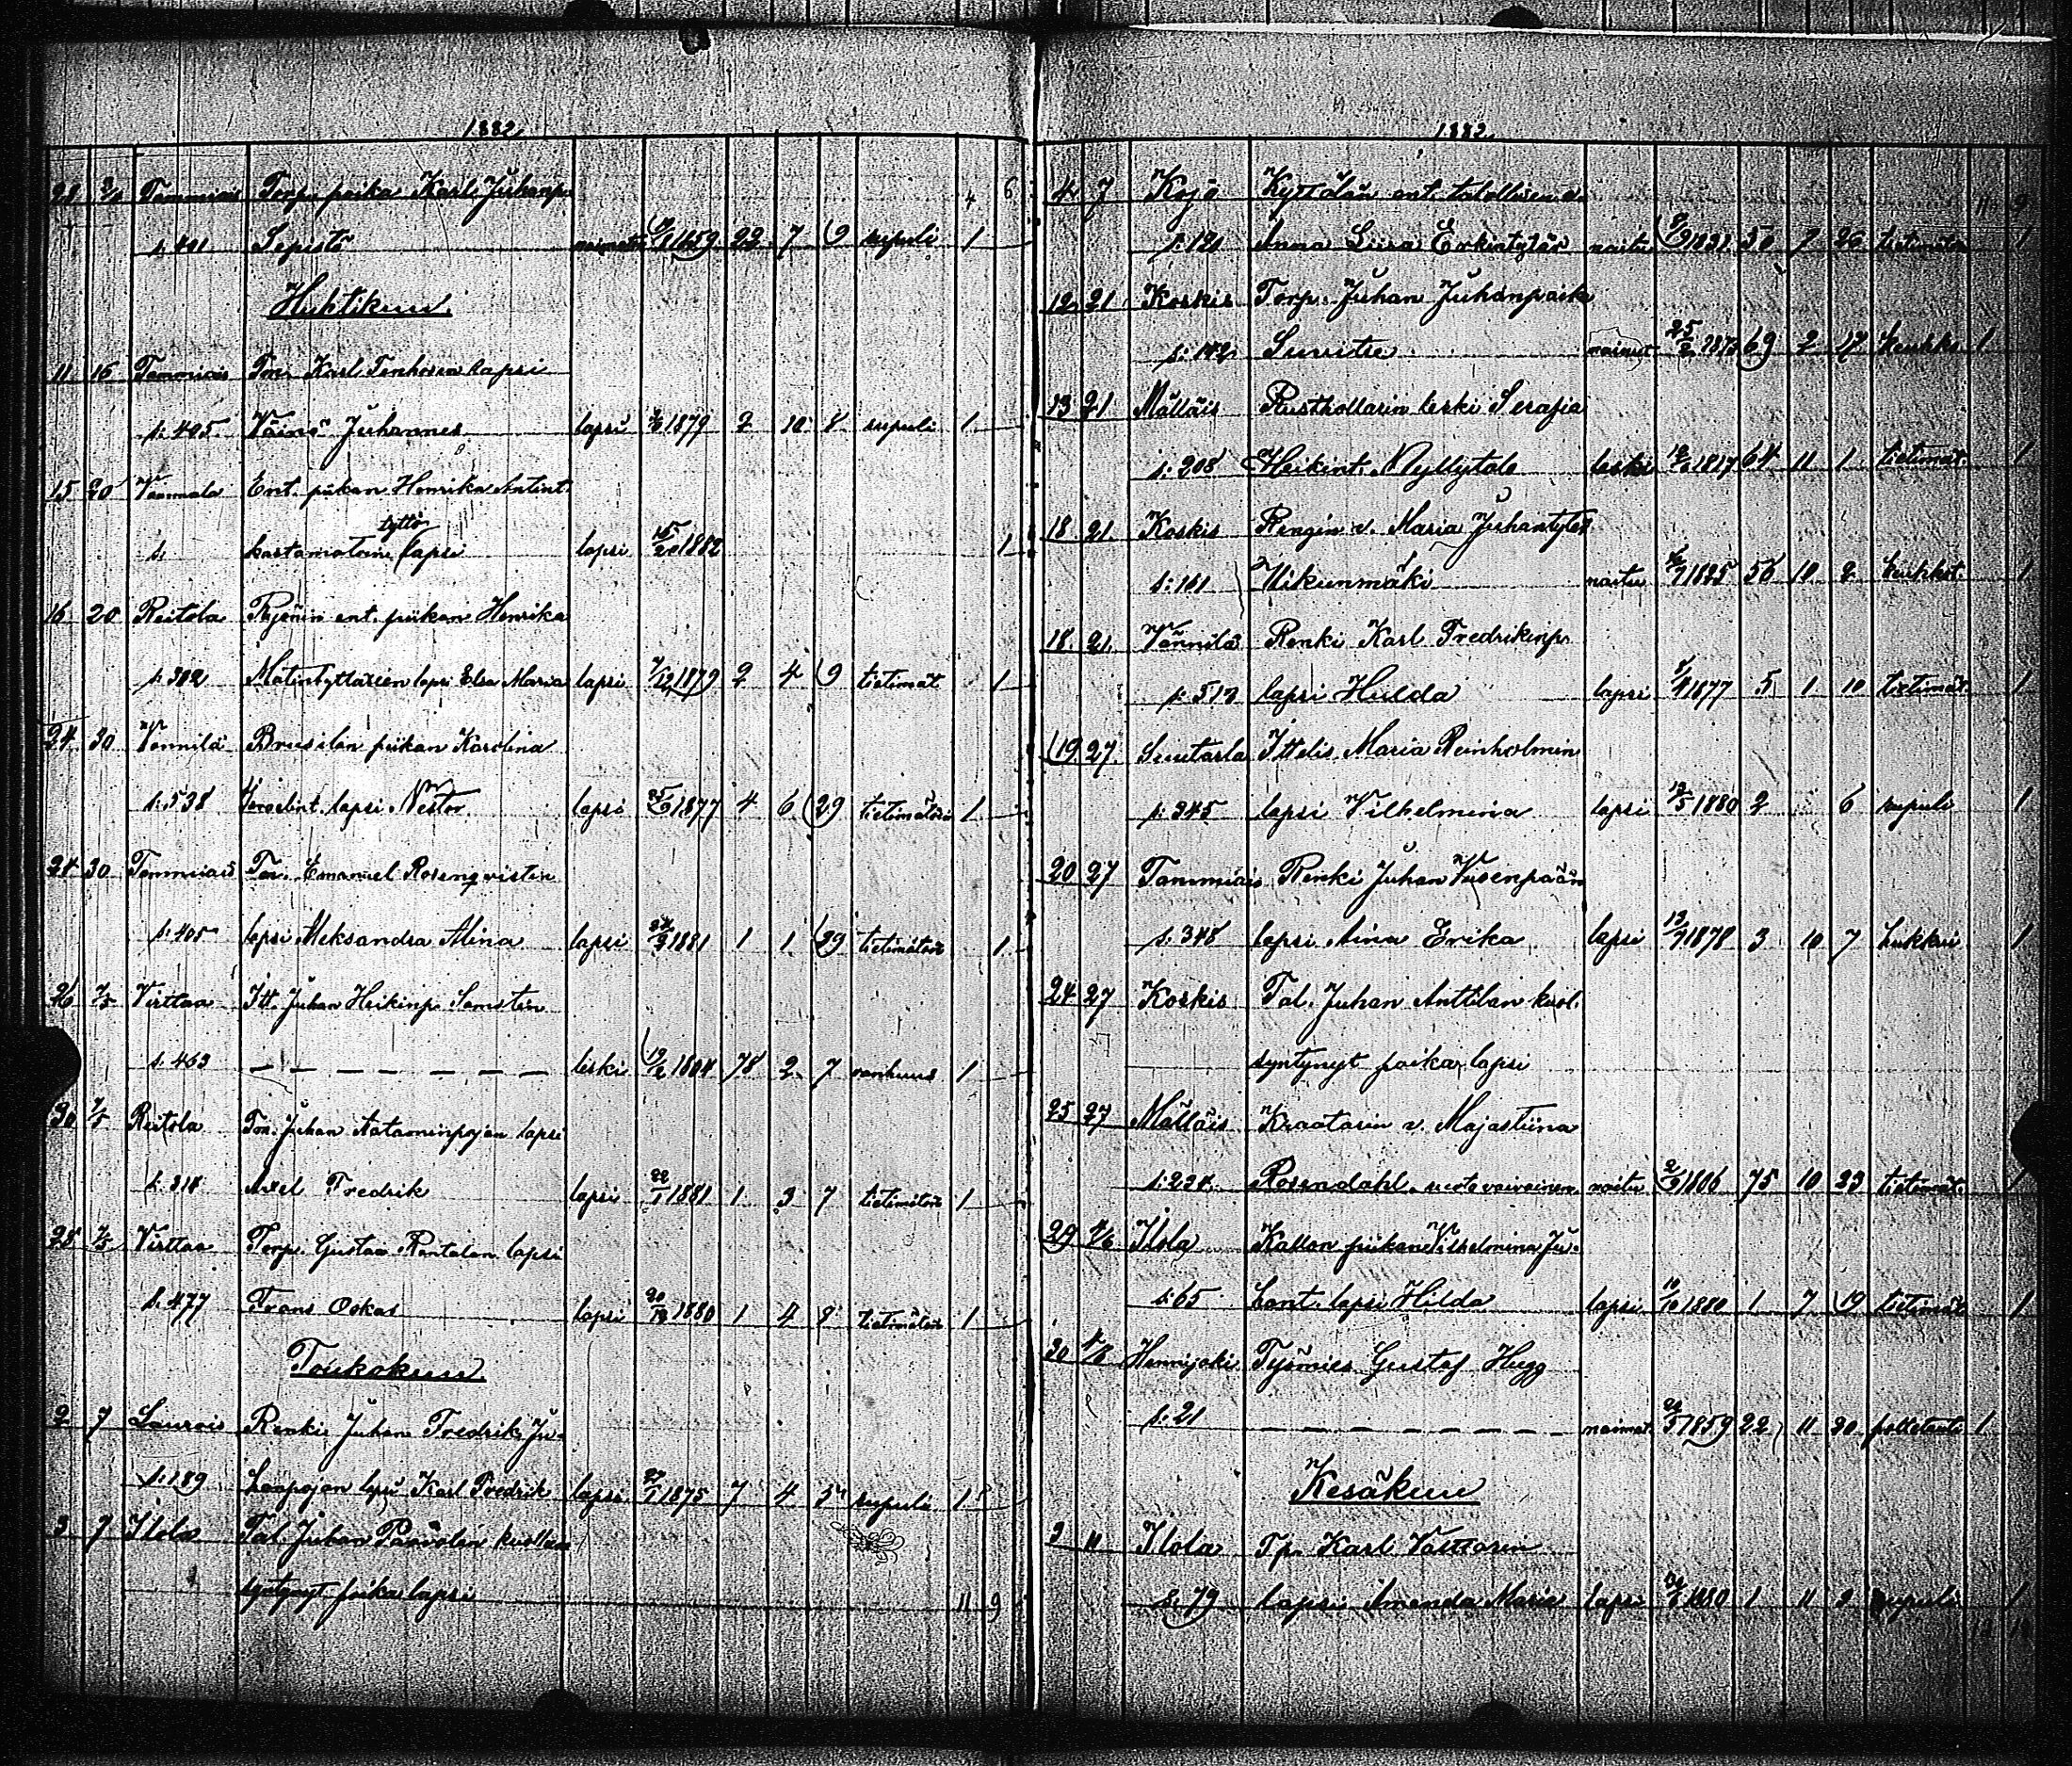 1882
28 Tammiais Torp. poika Karl Juhanp.
4 6
s. 401 Sepistö 1859 22 7 9 rupuli 1
Huhtikuu.
11 16 Tammiais Tor. Karl Tenhosen lapsi
s. 405 Väinö Juhannes lapsi 1879 2 10 8 rupuli 1
15 20 Vammala Ent. piikan Henrika Antint.
tyttö
s. kastamatoin lapsi lapsi 1882 1
16 20 Reitola ent. piikan Henrika
s. 302 Matintyttären lapsi Elsa Maria lapsi 7/12 1879 2 4 9 tietimät 1
24 30 Vännilä Brusilan piikan Karolina
s. 538 lapsi Nestor lapsi 1877 4 6 29 tietimätöin 1
24 30 Tammiais Tor. Emanuel Rosenqvistin
s. 405 lapsi Aleksandra Alina lapsi 1881 1 1 29 tietimätöin 1
26 7/5 Virttaa Itt. Juhan Heikinp. Samsten
s. 463 — — — — — — — leski 19/2 1804 78 2 7 vanhuus 1
30 7/5 Reitola Tor. Juhan Aataminpojan lapsi
s. 318 Axel Fredrik lapsi 22/1 1881 1 3 7 tietimätöin 1
28 7/5 Virttaa Torp. Gustaa Rantalan lapsi
s. 477 Frans Oskar lapsi 1880 1 4 8 tietimätöin 1
Toukokuu.
2 7 Laurois Renki Juhan Fredrik Ju-
s. 189 hanpojan lapsi Karl Fredrik lapsi 27/1 1875 7 4 5 rupuli 1
3 7 Ilola Tal. Juhan Paavolan kuollena
syntynyt poika lapsi
11 9
1882
4 7 Kojo Kyttälän ent. talollisen v.
11 9
s. 121 Anna Liisa Erkintytär naitu 1831 50 7 26 tietimätöin 1
12 21 Koskis Torp. Juhan Juhanpoika
s. 142 Suvitse nainut 69 2 17 keuhko 1
13 21 Mälläis Rusthollarin leski Serafia
s. 208 Heikint. Myllytalo leski 1817 64 11 1 tietimät. 1
18 21 Koskis Rengin v. Maria Juhantytär
s. 161 Uikunmäki naitu 1825 56 10 2 keuhkot. 1
18 21 Vännilä Renki Karl Fredrikinp.
lapsi Hulda lapsi 1877 5 1 10 tietimät. 1
19 27 Suutarla Ittelis. Maria Reinholmin
s. 345 lapsi Vilhelmina lapsi 13/5 1880 2 6 rupuli 1
20 27 Tammiais Renki Juhan Vusenpään
s. 348 lapsi Aina Erika lapsi 13/7 1878 3 10 7 hukkui 1
24 27 Koskis Tal. Juhan Anttilan kuol.
syntynyt poika lapsi
25 27 Mälläis Kraatarin v. Majastiina
s. 224 Rosendahl, ruotuvaivainen naitu 1806 75 10 23 tietimät. 1
29 4/6 Ilola Kallon piikan Vilhelmina Ju-
s. 65 hant. lapsi Hilda lapsi 10/10 1880 1 7 19 tietimät 1
30 4/6 Hennijoki Työmies Gustaf Hugg
s. 21 — — — — — — — naimat. 1859 22 11 30 polttotauti 1
Kesäkuu
3 11 Ilola Tp. Karl Vättärin
s. 79 lapsi Amanda Maria lapsi 1880 1 11 3 rupuli 1